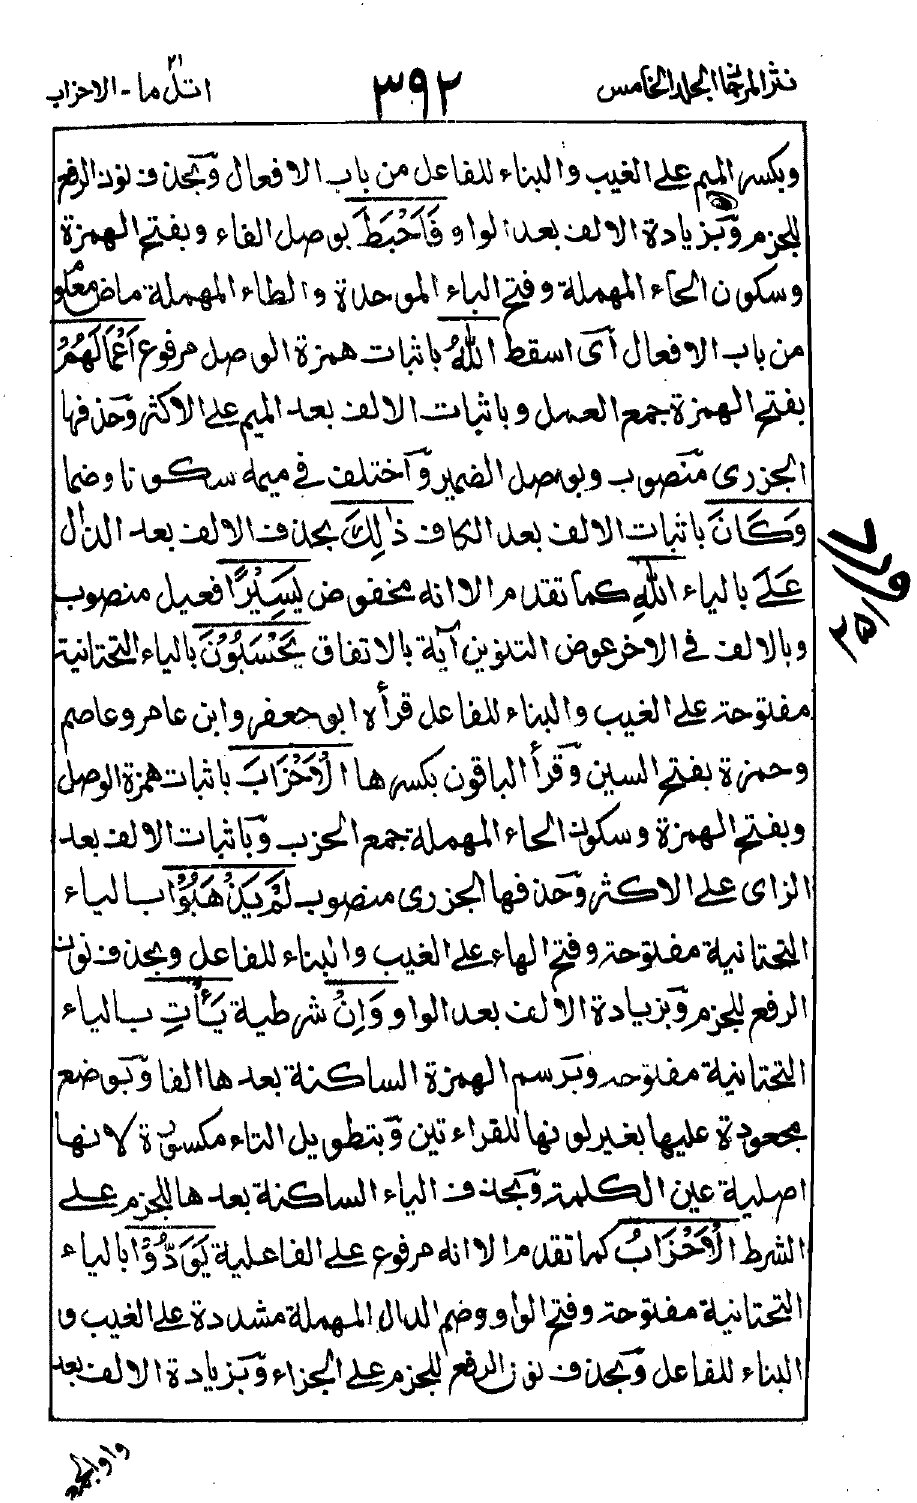 نثر المرجان المجلد الخامس
٣٩٢
اتل ما - الاحزاب
٢١
وبكسر الميم على الغيب والبناء للفاعل من باب الافعال وبحذف نون الرفع
للجزم وبزيادة الالف بعد الواو فَاَحْبَطَ بوصل الفاء وبفتح الهمزة
وسكون الحاء المهملة وفتح الباء الموحدة والطاء المهملة ماض معلوم
من باب الافعال اى اسقط اللهُ باثبات همزة الوصل مرفوع اَعْمَالَهُمْ
بفتح الهمزة جمع العمل وباثبات الالف بعد الميم على الاكثر وحذفها
الجزرى منصوب وبوصل الضمير واختلف فى ميمه سكونا وضما
وَكَانَ باثبات الالف بعد الكاف ذٰلِكَ بحذف الالف بعد الذال
عَلَى بالياء اللهِ كما تقدم الا انه مخفوض يَسِيْرًا فعيل منصوب
وبالالف فى الاخر عوض التنوين آية بالاتفاق يَحْسَبُوْنَ بالياء التحتانية
مفتوحة على الغيب والبناء للفاعل قرأه ابو جعفر وابن عامر وعاصم
وحمزة بفتح السين وقرأ الباقون بكسرها الْاَحْزَابَ باثبات همزة الوصل
وبفتح الهمزة وسكون الحاء المهملة جمع الحزب وباثبات الالف بعد
الزاى على الاكثر وحذفها الجزرى منصوب لَمْ يَذْهَبُوْا بالياء
التحتانية مفتوحة وفتح الهاء على الغيب والبناء للفاعل وبحذف نون
الرفع للجزم وبزيادة الالف بعد الواو وَاِنْ شرطية يَأْتِ بالياء
التحتانية مفتوحة وبرسم الهمزة الساكنة بعدها الفا وبوضع
مجعودة عليها بغير لونها للقراءتين وبتطويل التاء مكسورة لانها
اصلية عين الكلمة وبحذف الياء الساكنة بعدها للجزم على
الشرط الْاَحْزَابُ كما تقدم الا انه مرفوع على الفاعلية يَوَدُّوْا بالياء
التحتانية مفتوحة وفتح الواو وضم الدال المهملة مشددة على الغيب و
البناء للفاعل وبحذف نون الرفع للجزم على الجزاء وبزيادة الالف بعد
واو الجمع